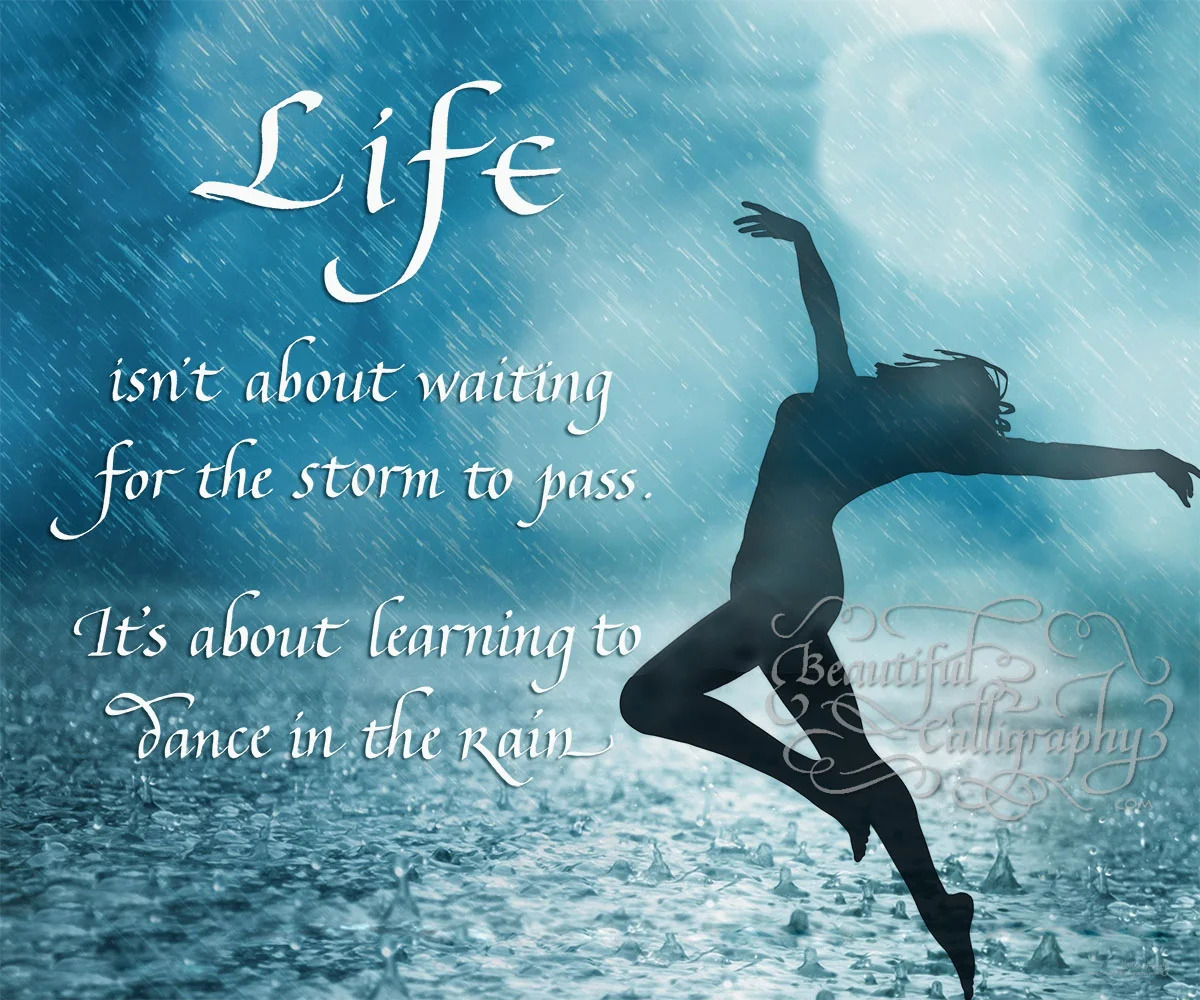 Life
isn't about waiting
for the storm to pass.
It's about learning to
dance in the Rain
Beautiful
Calligraphy
.com